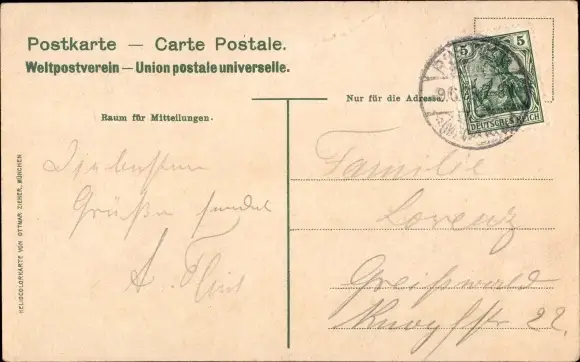 Postkarte — Carte Postale.
Weltpostverein — Union postale universelle.
Raum für Mitteilungen.
Nur für die Adresse.
5 5
DEUTSCHES REICH
HELIOCOLORKARTE VON OTTMAR ZIEHER, MÜNCHEN
Die besten
Grüße sendet
A.
Familie
Lorenz
Greifswald
22.